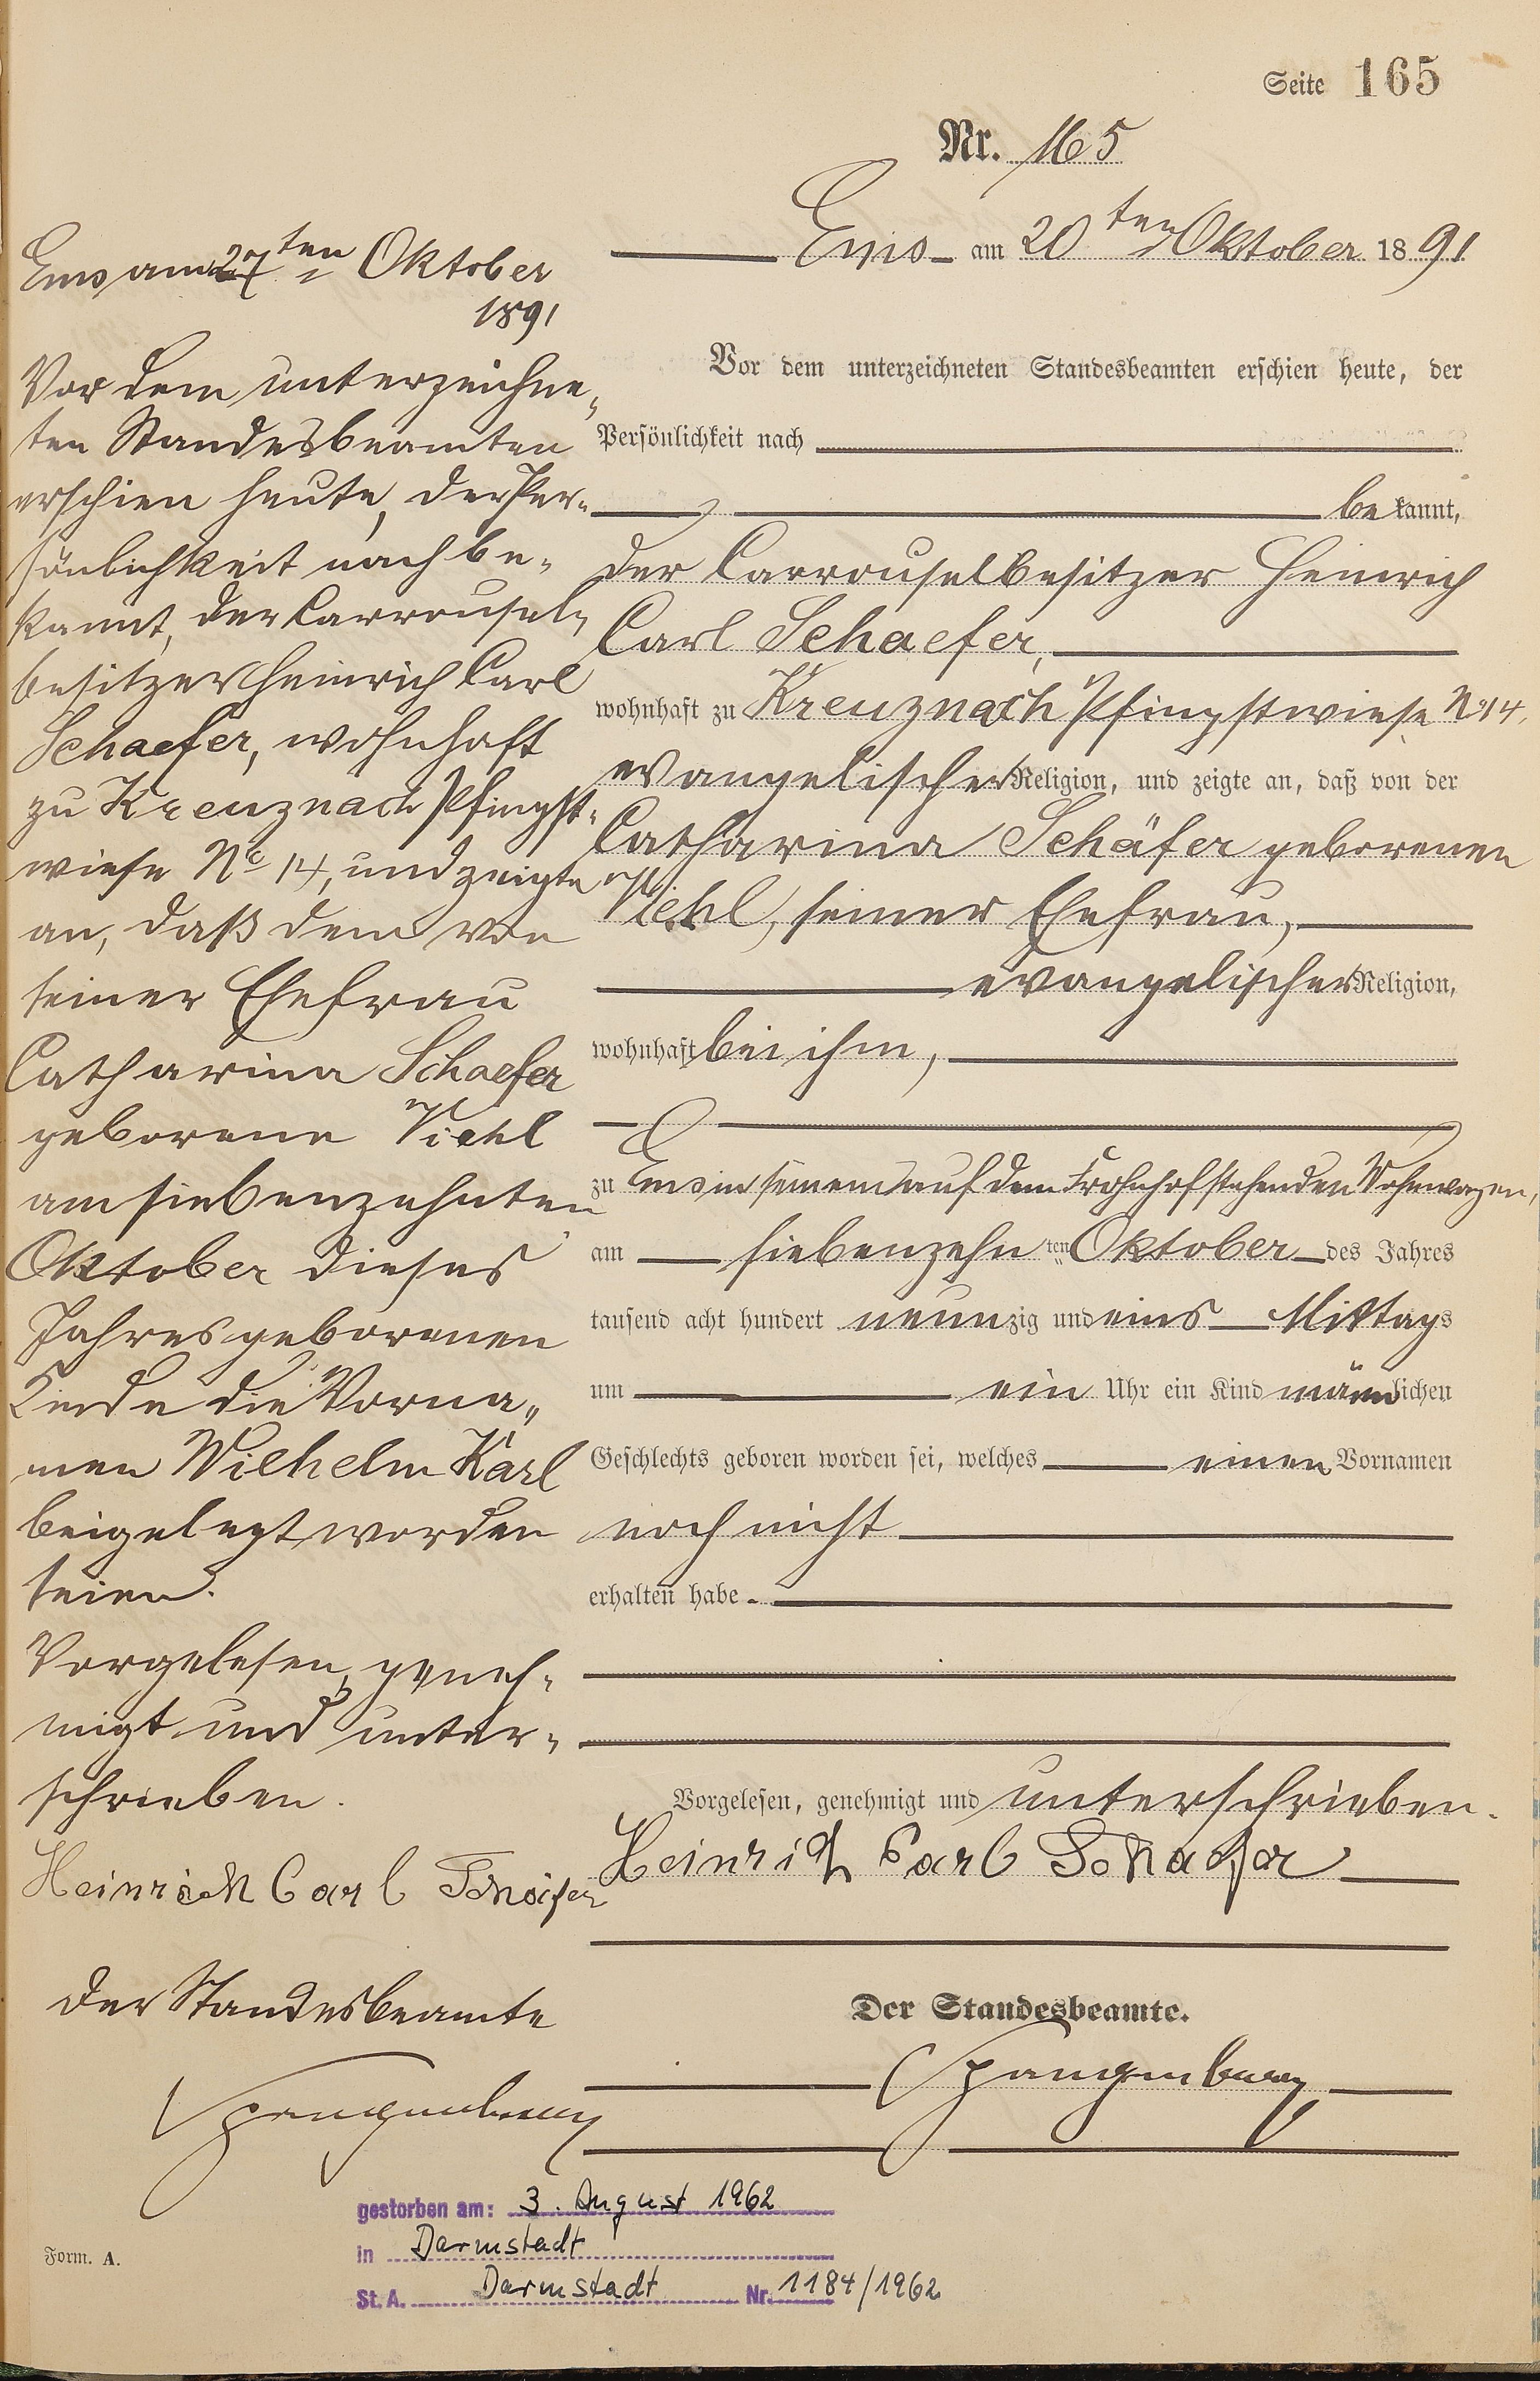 Seite 165
Nr. 165
Ems am 20ten Oktober 1891
Vor dem unterzeichneten Standesbeamten erschien heute, der
Persönlichkeit nach
bekannt,
der Carrouselbesitzer Heinrich
Carl Schaefer,
wohnhaft zu Kreuznach Pfingstwiese No 14,
evangelischer Religion, und zeigte an, daß von der
Catharina Schäfer geborenen
Viehl, seiner Ehefrau,
evangelischer Religion,
wohnhaft bei ihm,
zu Ems in seinem auf dem Frohnhof stehenden Wohnwagen,
am siebenzehnten Oktober des Jahres
tausend acht hundert neunzig und eins Mittags
um ein Uhr ein Kind männlichen
Geschlechts geboren worden sei, welches einen Vornamen
noch nicht
erhalten habe.
Vorgelesen, genehmigt und unterschrieben.
Heinrich Carl Schaefer
Der Standesbeamte.
Spangenberg
Ems am 27ten Oktober
1891
Vor dem unterzeichne-
ten Standesbeamten
erschien heute, der Per-
sönlichkeit nach be-
kannt, der Carrousel-
besitzer Heinrich Carl
Schaefer, wohnhaft
zu Kreuznach Pfingst-
wiese No 14, und zeigte
an, daß dem von
seiner Ehefrau
Catharina Schaefer
geborene Viehl
am siebenzehnten
Oktober dieses
Jahres geborenen
Kinde die Vorna-
men Wilhelm Karl
beigelegt worden
seien.
Vorgelesen, geneh-
migt und unter-
schrieben.
Heinrich Carl Schäfer
Der Standesbeamte
Spangenberg
gestorben am: 3. August 1962
in Darmstadt
St. A. Darmstadt Nr. 1184/1962
Form. A.